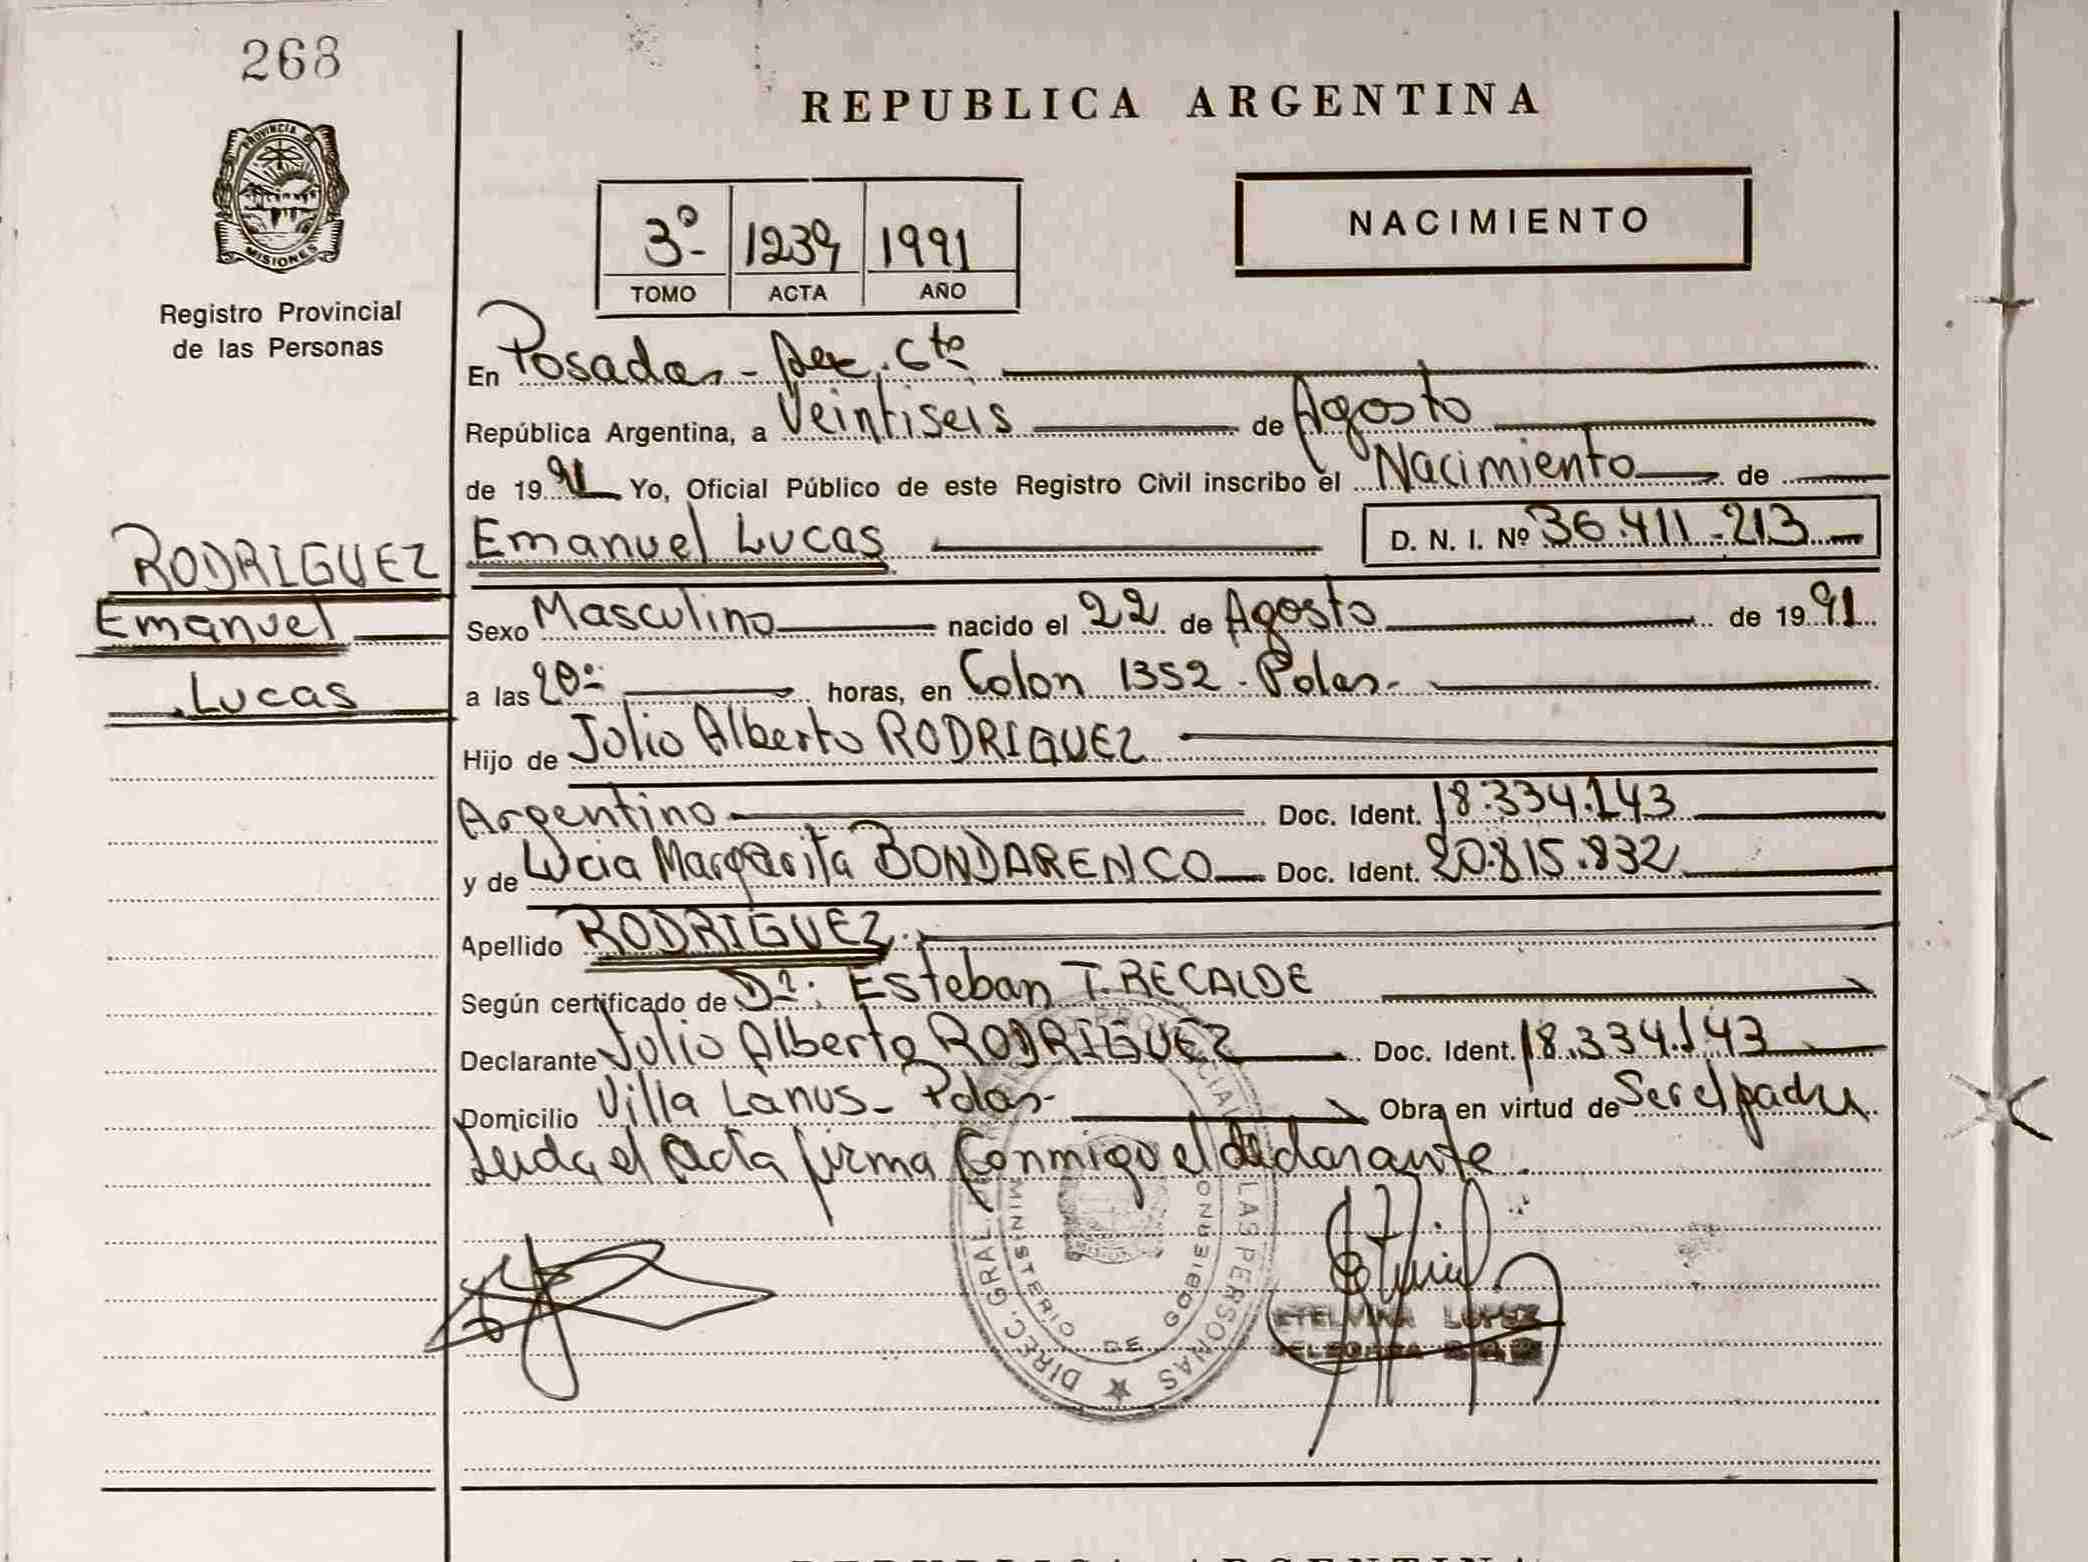 268
PROVINCIA DE
MISIONES
Registro Provincial
de las Personas
RODRIGUEZ
Emanuel
Lucas
REPUBLICA ARGENTINA
3º 1239 1991
TOMO ACTA AÑO
NACIMIENTO
En Posadas - Sec. 6ta
República Argentina, a Veintiseis de Agosto
de 1991 Yo, Oficial Público de este Registro Civil inscribo el Nacimiento de
Emanuel Lucas D. N. I. Nº 36.411.213
Sexo Masculino nacido el 22 de Agosto de 1991
a las 20º horas, en Colon 1352 - Pdas-
Hijo de Julio Alberto RODRIGUEZ
Argentino Doc. Ident. 18.334.143
y de Lucia Margarita BONDARENCO Doc. Ident. 20.815.832
Apellido RODRIGUEZ
Según certificado de Dr: Esteban T. RECALDE
Declarante Julio Alberto RODRIGUEZ Doc. Ident. 18.334.143
Domicilio Villa Lanus - Pdas- Obra en virtud de Ser el padre
Leida el Acta firma Conmigo el declarante.
DIREC. GRAL. LAS PERSONAS
MINISTERIO DE GOBIERNO
ETELVINA LOPEZ
REPUBLICA ARGENTINA